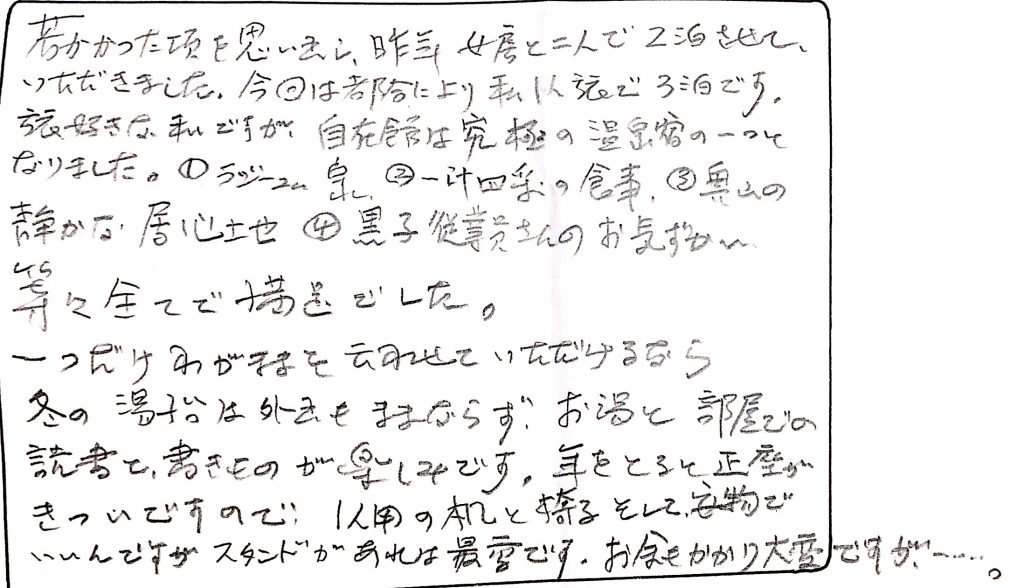 若かかった頃を思い出し、昨年 女房と二人で2泊させて、
いただきました。今回は都合により私1人旅で3泊です。
旅好きな私ですが、自在館は究極の温泉宿の一つと
なりました。①ラジーユム泉、②一汁四菜の食事、③奥山の
静かな居心土地 ④黒子従業員さんのお気ずかい
等々全てで満足でした。
一つだけわがままを云わせていただけるなら
冬の湯治は外出もままならず、お湯と部屋での
読書と、書きものが楽しみです。年をとると正座が
きついですので、1人用の机と椅子そして、安物で
いいんですがスタンドがあれば最高です。お金もかかり大変ですが、……。